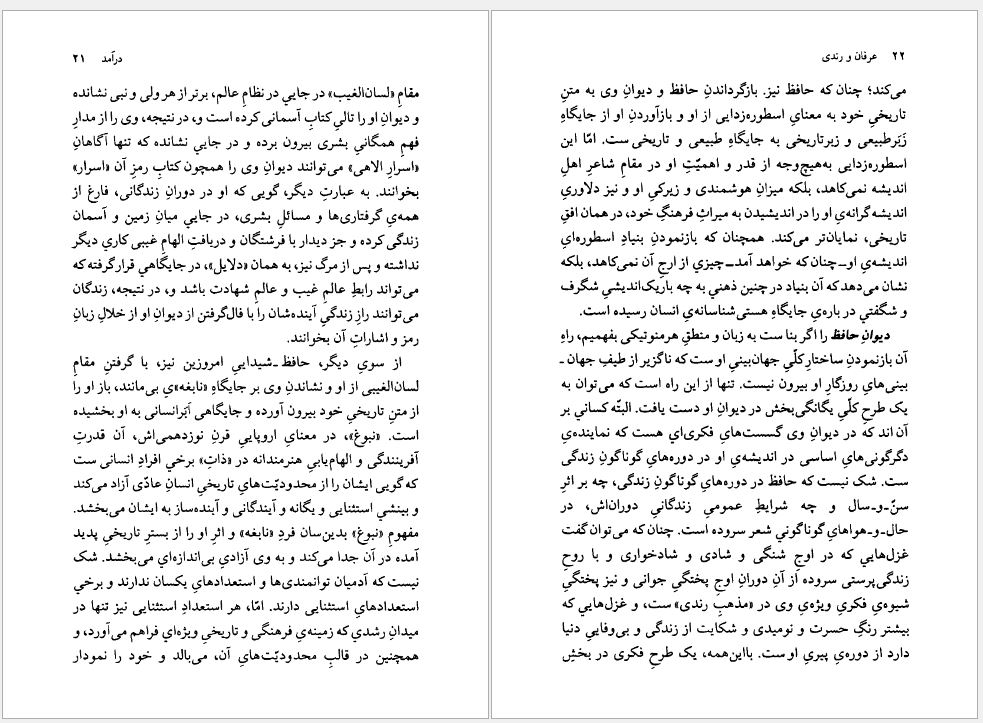 درآمد ۲۱
مقامِ «لسان‌الغیب» در جایي در نظامِ عالم، برتر از هر ولی و نبی نشانده
و دیوانِ او را تالیِ کتابِ آسمانی کرده است و، در نتیجه، وی را از مدارِ
فهمِ همگانیِ بشری بیرون برده و در جایي نشانده که تنها آگاهانِ
«اسرارِ الاهی» می‌توانند دیوانِ وی را همچون کتابِ رمزِ آن «اسرار»
بخوانند. به عبارتِ دیگر، گویی که او در دورانِ زندگانی، فارغ از
همه‌یِ گرفتاری‌ها و مسائلِ بشری، در جایي میانِ زمین و آسمان
زندگی کرده و جز دیدار با فرشتگان و دریافتِ الهامِ غیبی کاري دیگر
نداشته و پس از مرگ نیز، به همان «دلایل»، در جایگاهي قرار گرفته که
می‌تواند رابطِ عالمِ غیب و عالمِ شهادت باشد و، در نتیجه، زندگان
می‌توانند رازِ زندگیِ آینده‌شان را با فال‌گرفتن از دیوانِ او از خلالِ زبانِ
رمز و اشاراتِ آن بخوانند.
از سویِ دیگر، حافظ‌ـ‌شیداییِ امروزین نیز، با گرفتنِ مقامِ
لسان‌الغیبی از او و نشاندنِ وی بر جایگاهِ «نابغه»یِ بی‌مانند، باز او را
از متنِ تاریخیِ خود بیرون آورده و جایگاهی اَبَرانسانی به او بخشیده
است. «نبوغ»، در معنایِ اروپاییِ قرنِ نوزدهمی‌اش، آن قدرتِ
آفرینندگی و الهام‌یابیِ هنرمندانه در «ذاتِ» برخي افرادِ انسانی ست
که گویی ایشان را از محدودیّت‌هایِ تاریخیِ انسانِ عادّی آزاد می‌کند
و بینشي استثنایی و یگانه و آیندگانی و آینده‌ساز به ایشان می‌بخشد.
مفهومِ «نبوغ» بدین‌سان فردِ «نابغه» و اثرِ او را از بسترِ تاریخیِ پدید
آمده در آن جدا می‌کند و به وی آزادیِ بی‌اندازه‌ای می‌بخشد. شک
نیست که آدمیان توانمندی‌ها و استعدادهایِ یکسان ندارند و برخي
استعدادهایِ استثنایی دارند. امّا، هر استعدادِ استثنایی نیز تنها در
میدانِ رشدی که زمینه‌یِ فرهنگی و تاریخیِ ویژه‌ای فراهم می‌آورد، و
همچنین در قالبِ محدودیّت‌هایِ آن، می‌بالد و خود را نمودار
۲۲ عرفان و رندی
می‌کند؛ چنان که حافظ نیز. بازگرداندنِ حافظ و دیوانِ وی به متنِ
تاریخیِ خود به معنایِ اسطوره‌زدایی از او و بازآوردنِ او از جایگاهِ
زَبَرطبیعی و زبرتاریخی به جایگاهِ طبیعی و تاریخی ست. امّا این
اسطوره‌زدایی به‌هیچ‌وجه از قدر و اهمیّتِ او در مقامِ شاعرِ اهلِ
اندیشه نمی‌کاهد، بلکه میزانِ هوشمندی و زیرکیِ او و نیز دلاوریِ
اندیشه‌گرانه‌یِ او را در اندیشیدن به میراثِ فرهنگِ خود، در همان افقِ
تاریخی، نمایان‌تر می‌کند. همچنان که بازنمودنِ بنیادِ اسطوره‌ایِ
اندیشه‌یِ او—چنان که خواهد آمد—چیزي از ارجِ آن نمی‌کاهد، بلکه
نشان می‌دهد که آن بنیاد در چنین ذهني به چه باریک‌اندیشیِ شگرف
و شگفتي در باره‌یِ جایگاهِ هستی‌شناسانه‌یِ انسان رسیده است.
دیوانِ حافظ را اگر بنا ست به زبان و منطقِ هرمنوتیکی بفهمیم، راهِ
آن بازنمودنِ ساختارِ کلّیِ جهان‌بینیِ او ست که ناگزیر از طیفِ جهان‌ـ
بینی‌هایِ روزگارِ او بیرون نیست. تنها از این راه است که می‌توان به
یک طرحِ کلّیِ یگانگی‌بخش در دیوانِ او دست یافت. البتّه کساني بر
آن اند که در دیوانِ وی گسست‌هایِ فکری‌اي هست که نماینده‌یِ
دگرگونی‌هایِ اساسی در اندیشه‌یِ او در دوره‌هایِ گوناگونِ زندگی
ست. شک نیست که حافظ در دوره‌هایِ گوناگونِ زندگی، چه بر اثرِ
سنّ‌ـ‌و‌ـ‌سال و چه شرایطِ عمومیِ زندگانیِ دوران‌اش، در
حال‌ـ‌و‌ـ‌هواهایِ گوناگوني شعر سروده است. چنان که می‌توان گفت
غزل‌هایي که در اوجِ شنگی و شادی و شادخواری و با روحِ
زندگی‌پرستی سروده از آنِ دورانِ اوجِ پختگیِ جوانی و نیز پختگیِ
شیوه‌یِ فکریِ ویژه‌یِ وی در «مذهبِ رندی» ست، و غزل‌هایي که
بیشتر رنگِ حسرت و نومیدی و شکایت از زندگی و بی‌وفاییِ دنیا
دارد از دوره‌یِ پیریِ او ست. بااین‌همه، یک طرحِ فکری در بخشِ